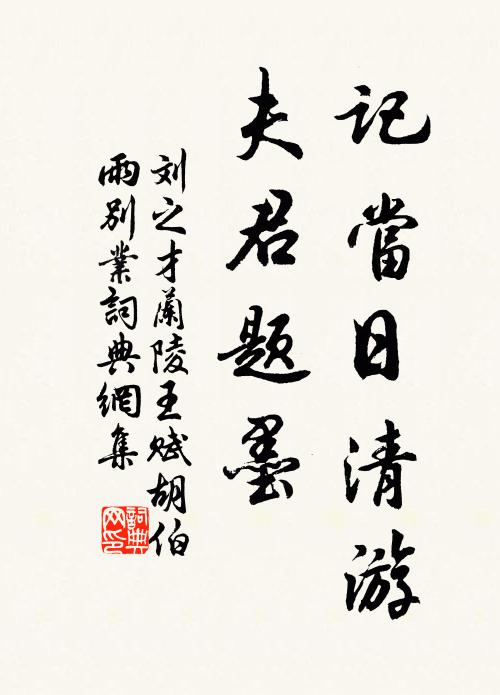 记當日清游
夫君题墨
刘之才蘭陵王赋胡伯
雨别業詞典網集
詞典网印